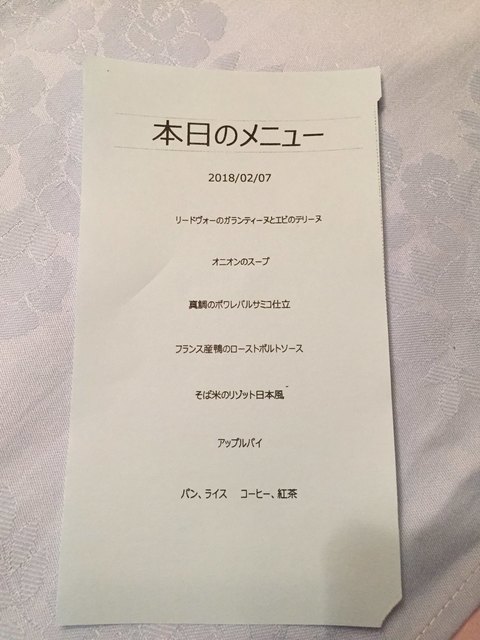 本日のメニュー
2018/02/07
リードヴォーのガランティーヌとエビのテリーヌ
オニオンのスープ
真鯛のポワレバルサミコ仕立
フランス産鴨のローストポルトソース
そば米のリゾット日本風
アップルパイ
パン、ライス コーヒー、紅茶